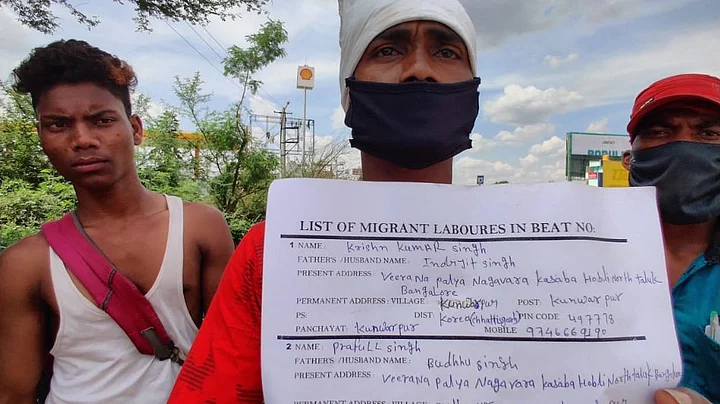 LIST OF MIGRANT LABOURES IN BEAT NO:
1 NAME: Krishn KUMAR Singh
FATHER'S /HUSBAND NAME: Indrjit singh
PRESENT ADDRESS: Veerana palya Nagavara Kasaba Hobli North taluk
Bangalore
PERMANENT ADDRESS: VILLAGE: Kunwarpur POST: Kunwarpur
PS: DIST: Korea (Chhattisgarh) PIN CODE 497778
PANCHAYAT: Kunwarpur MOBILE 9746669190
2 NAME: Prafull singh
FATHER'S /HUSBAND NAME: Budhhu singh
PRESENT ADDRESS: Veerana palya Nagavara Kasaba Hobli North taluk Bangalore
PERMANENT ADDRESS: VILLAGE